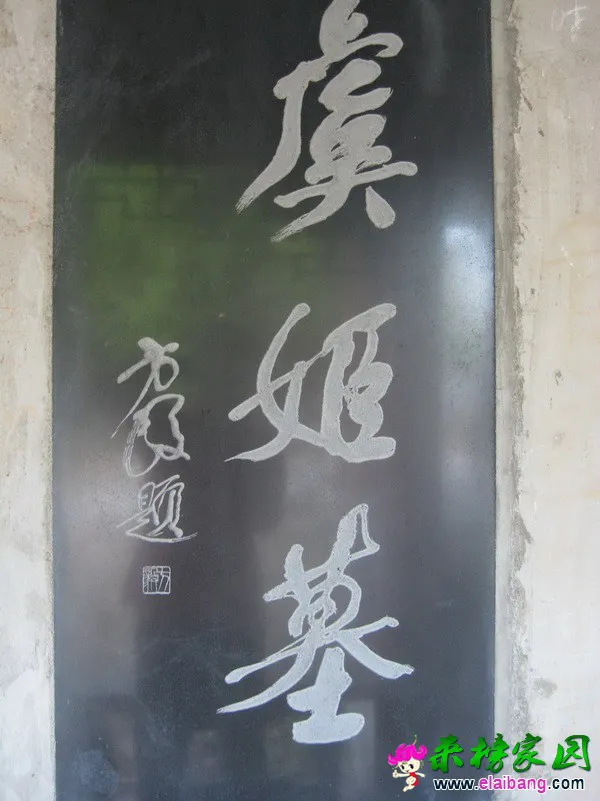 虞姬墓
题
采榜家园
www.elaibang.com